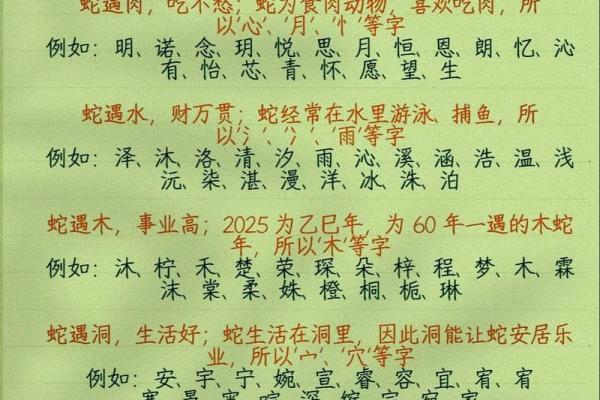 蛇遇肉，吃不愁；蛇为食肉动物，喜欢吃肉，所
以‘心’、‘月’、‘忄’等字
例如：明、诺、念、玥、悦、思、月、恒、恩、朗、忆、沁
有、怡、芯、青、怀、愿、望、生
蛇遇水，财万贯；蛇经常在水里游泳、捕鱼，所
以‘氵’、‘冫’、‘雨’等字
例如：泽、沐、洛、清、汐、雨、沁、溪、涵、浩、温、浅
沅、柒、湛、漫、洋、冰、洙、泊
蛇遇木，事业高；2025 为乙巳年，为 60 年一遇的木蛇
年，所以‘木’等字
例如：沐、柠、禾、楚、荣、琛、朵、梓、程、梦、木、霖
沫、棠、柔、姝、橙、桐、栀、琳
蛇遇洞，生活好；蛇生活在洞里，因此洞能让蛇安居乐
业，所以‘宀’、‘穴’等字
例如：安、宇、宁、婉、宣、睿、容、宜、宥、宥